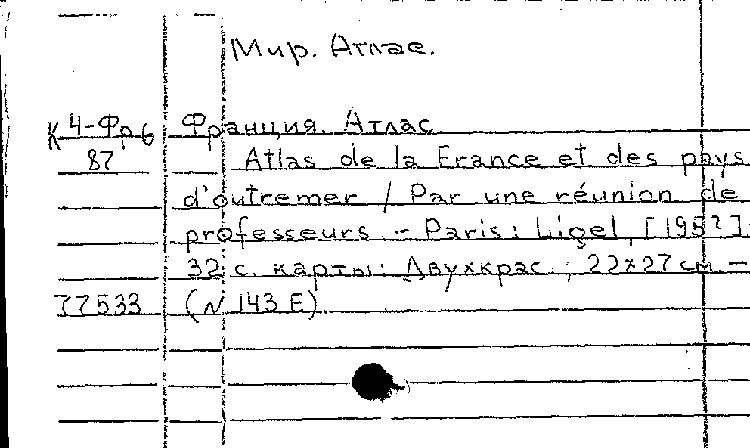 Мир. Атлас.
К 4-Фр6 Франция. Атлас
87 Atlas de la France et des pays
d'outremer / Par une réunion de
professeurs. - Paris: Ligel, [195?].
32 с. карты: Двухкрас.; 22x27 см. —
77533 (N 143 E)